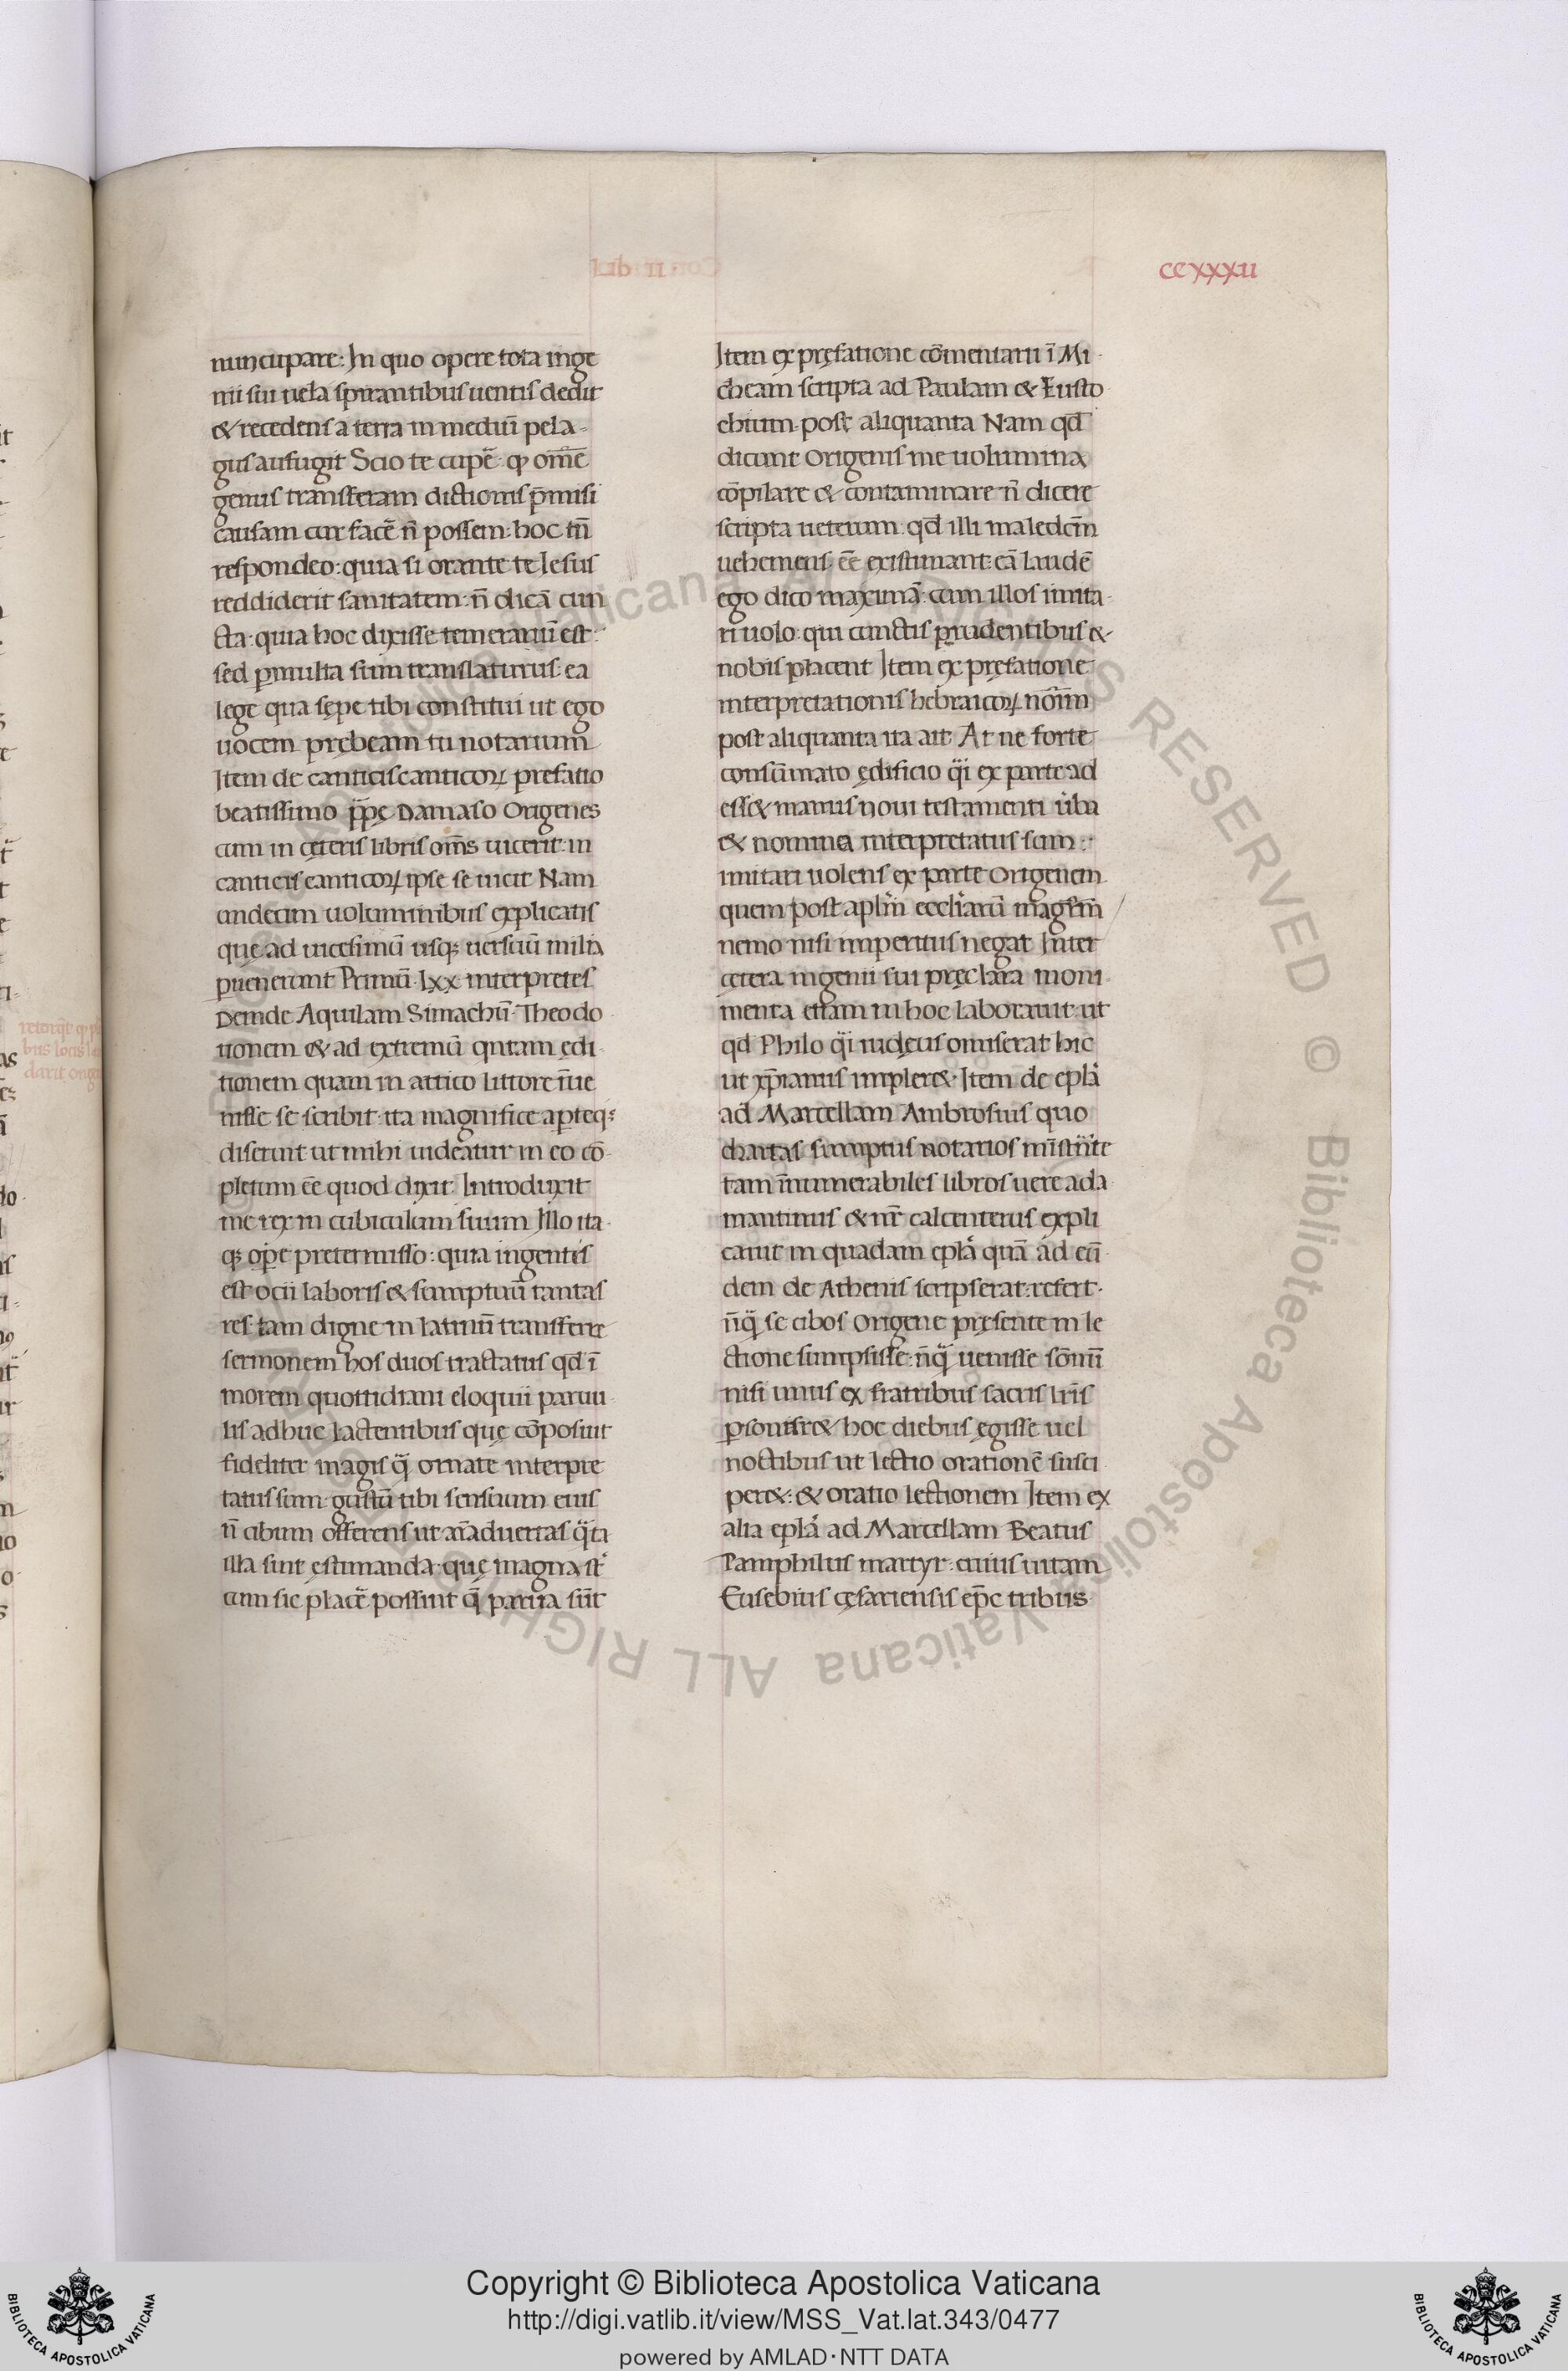 CCXXXII
nuncupare: In quo opere tota inge
nii sui uela spirantibus uentis dedit
& recedens a terra in mediū pela-
gus aufugit Scio te cupē· ꝙ om̄e
genus transferam dictionis p̄misi
causam cur facē n̄ possem: hoc tn̄
respondeo: quia si orante te Iesus
reddiderit sanitatem: n̄ dicā cun
cta· quia hoc dixisse temerariū est:
sed ꝑmulta sum translaturus: ea
lege qua sępe tibi constitui ut ego
uocem prębeam tu notarium
Item de canticis canticoꝝ prefatio
beatissimo p̄p̄ę Damaso Origenes
cum in cęteris libris om̄s uicerit: in
canticis canticoꝝ ipse se uicit Nam
undecim uoluminibus explicatis
quę ad uicesimū usq; uersuū milia
ꝑuenerunt Primū· lxx· interpretes
Deinde Aquilam Simachū· Theodo
tionem & ad extremū qntam ędi
tionem quam in attico littore īue
nisse se scribit· ita magnifice aꝑteq;
diseruit· ut mihi uideatur in eo cō
pletum ēe quod dixit· Introduxit
me rex in cubiculum suum Illo ita
q; oꝑe pretermisso: quia ingentis
est ocii laboris & sumptuū tantas
res tam digne in latinū transferre
sermonem hos duos tractatus qd̄ ī
morem quottidiani eloquii paruu
lis adhuc lactentibus quę cōposuit
fideliter magis q̄ ornate interpre
tatus sum· gustū tibi sensuum eius
n̄ cibum offerens ut aīaduertas q̄ta
illa sint estimanda· quę magna st̄
cum sic placē possint q̄ parua sūt
Item ex pręfatione cōmentarii ī Mi
cheam scripta ad Paulam & Eusto
chium· post aliquanta Nam qd̄
dicunt Origenis me uolumina
cōpilare & contaminare n̄ dicere
scripta ueterum· qd̄ illi maledcm̄
uehemens· ēe existimant: eā laudē
ego dico maximā· cum illos imita
ri uolo· qui cunctis prudentibus &
nobis placent Item ex pręfatione
interpretationis hebraicoꝝ noīm
post aliquanta ita ait· At ne forte
consūmato ędificio q̄i ex parte ad
ess& manus noui testamenti ūba
& nomina interpretatus sum:·
imitari uolens ex parte Origenem
quem post aplm̄ eccliarū magrm̄
nemo nisi imperitus negat Inter
cętera ingenii sui pręclara moni
menta etiam in hoc laborauit: ut
qd̄ Philo q̄i iudęus omiserat hic
ut xp̄ianus impler&· Item de epla
ad Marcellam Ambrosius quo
chartas sumptus notarios mīstrāte
tam īnumerabiles libros uere ada
mantinus & nr̄ calcenterus expli
cauit in quadam epla quā ad eū
dem de Athenis scripserat: refert·
ūq̄ se cibos Origene pręsente in le
ctione sumpsisse: n̄q̄ uenisse sōnū
nisi unus ex fratribus sacris lrīs
ꝑsonar& hoc diebus egisse uel
noctibus ut lectio orationē susci
per&: & oratio lectionem Item ex
alia epla ad Marcellam Beatus
Pamphilus martyr: cuius uitam
Eusebius cęsariensis ep̄c tribus
Copyright © Biblioteca Apostolica Vaticana
http://digi.vatlib.it/view/MSS_Vat.lat.343/0477
powered by AMLAD·NTT DATA